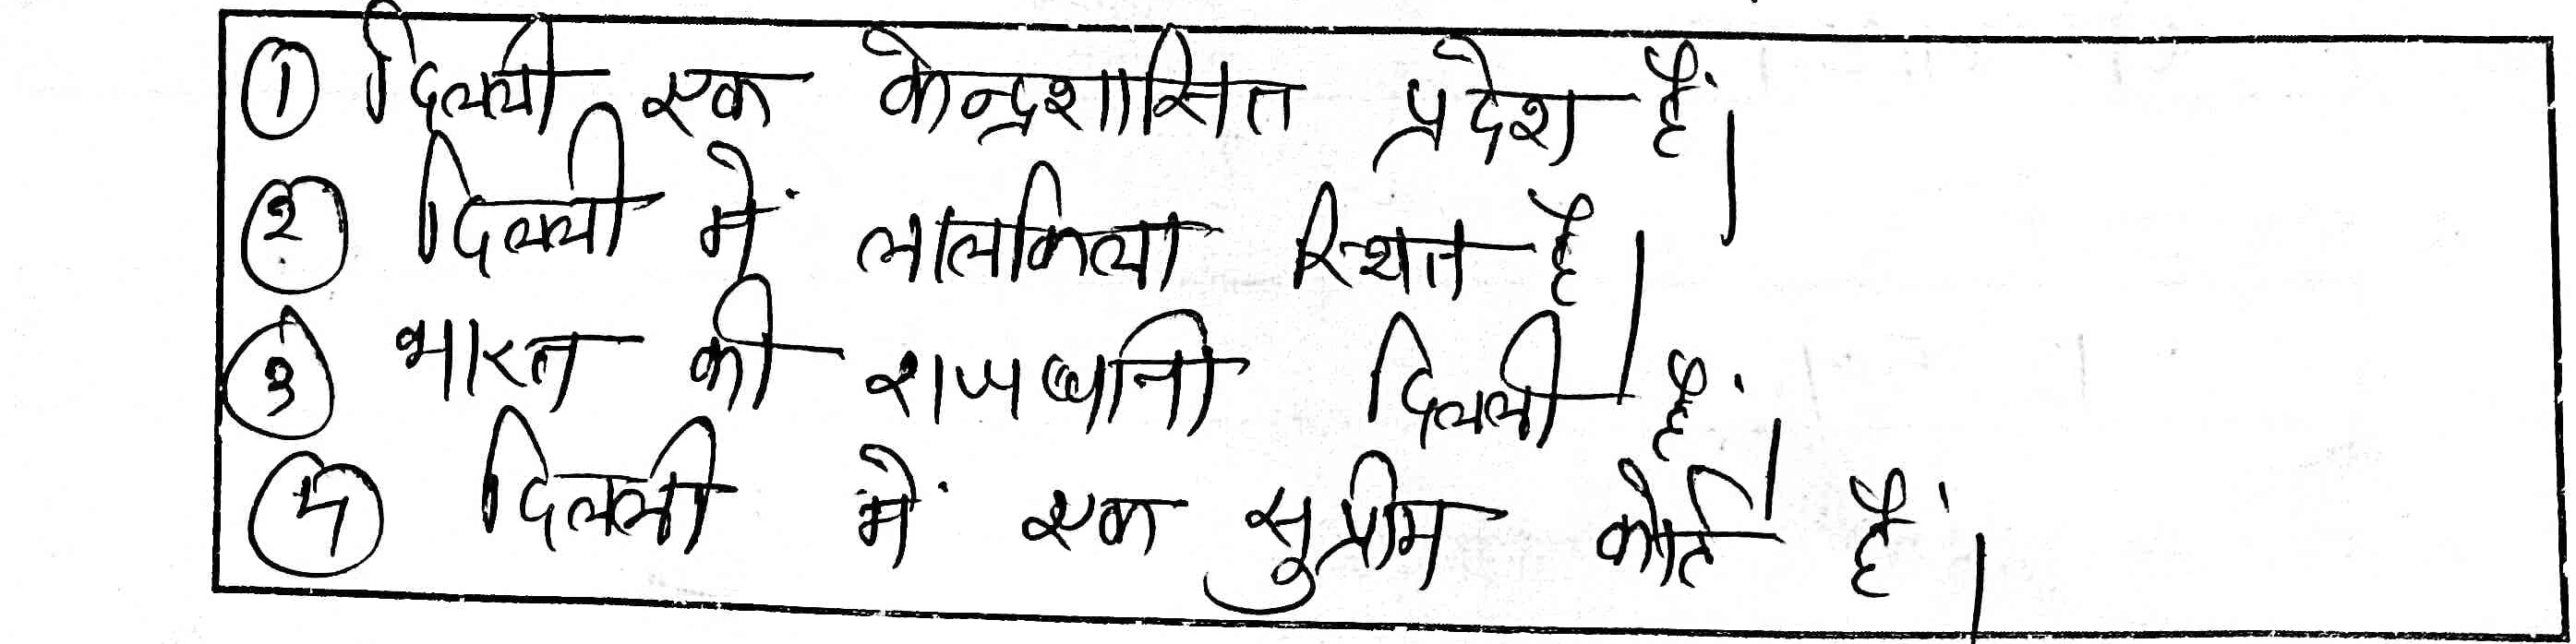 ① दिल्ली एक केन्द्रशासित प्रदेश हैं।
② दिल्ली में लालकिला स्थित है।
③ भारत की राजधानी दिल्ली हैं।
④ दिल्ली में एक सुप्रीम कोर्ट हैं।